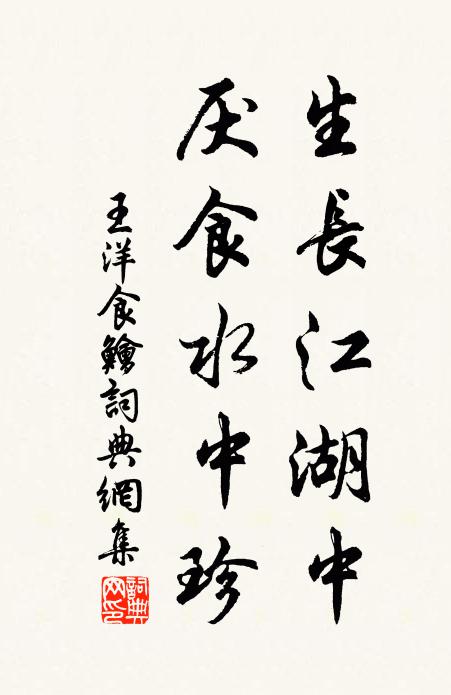 生長江湖中
厌食水中珍
王洋食鱠詞典網集
詞典網印